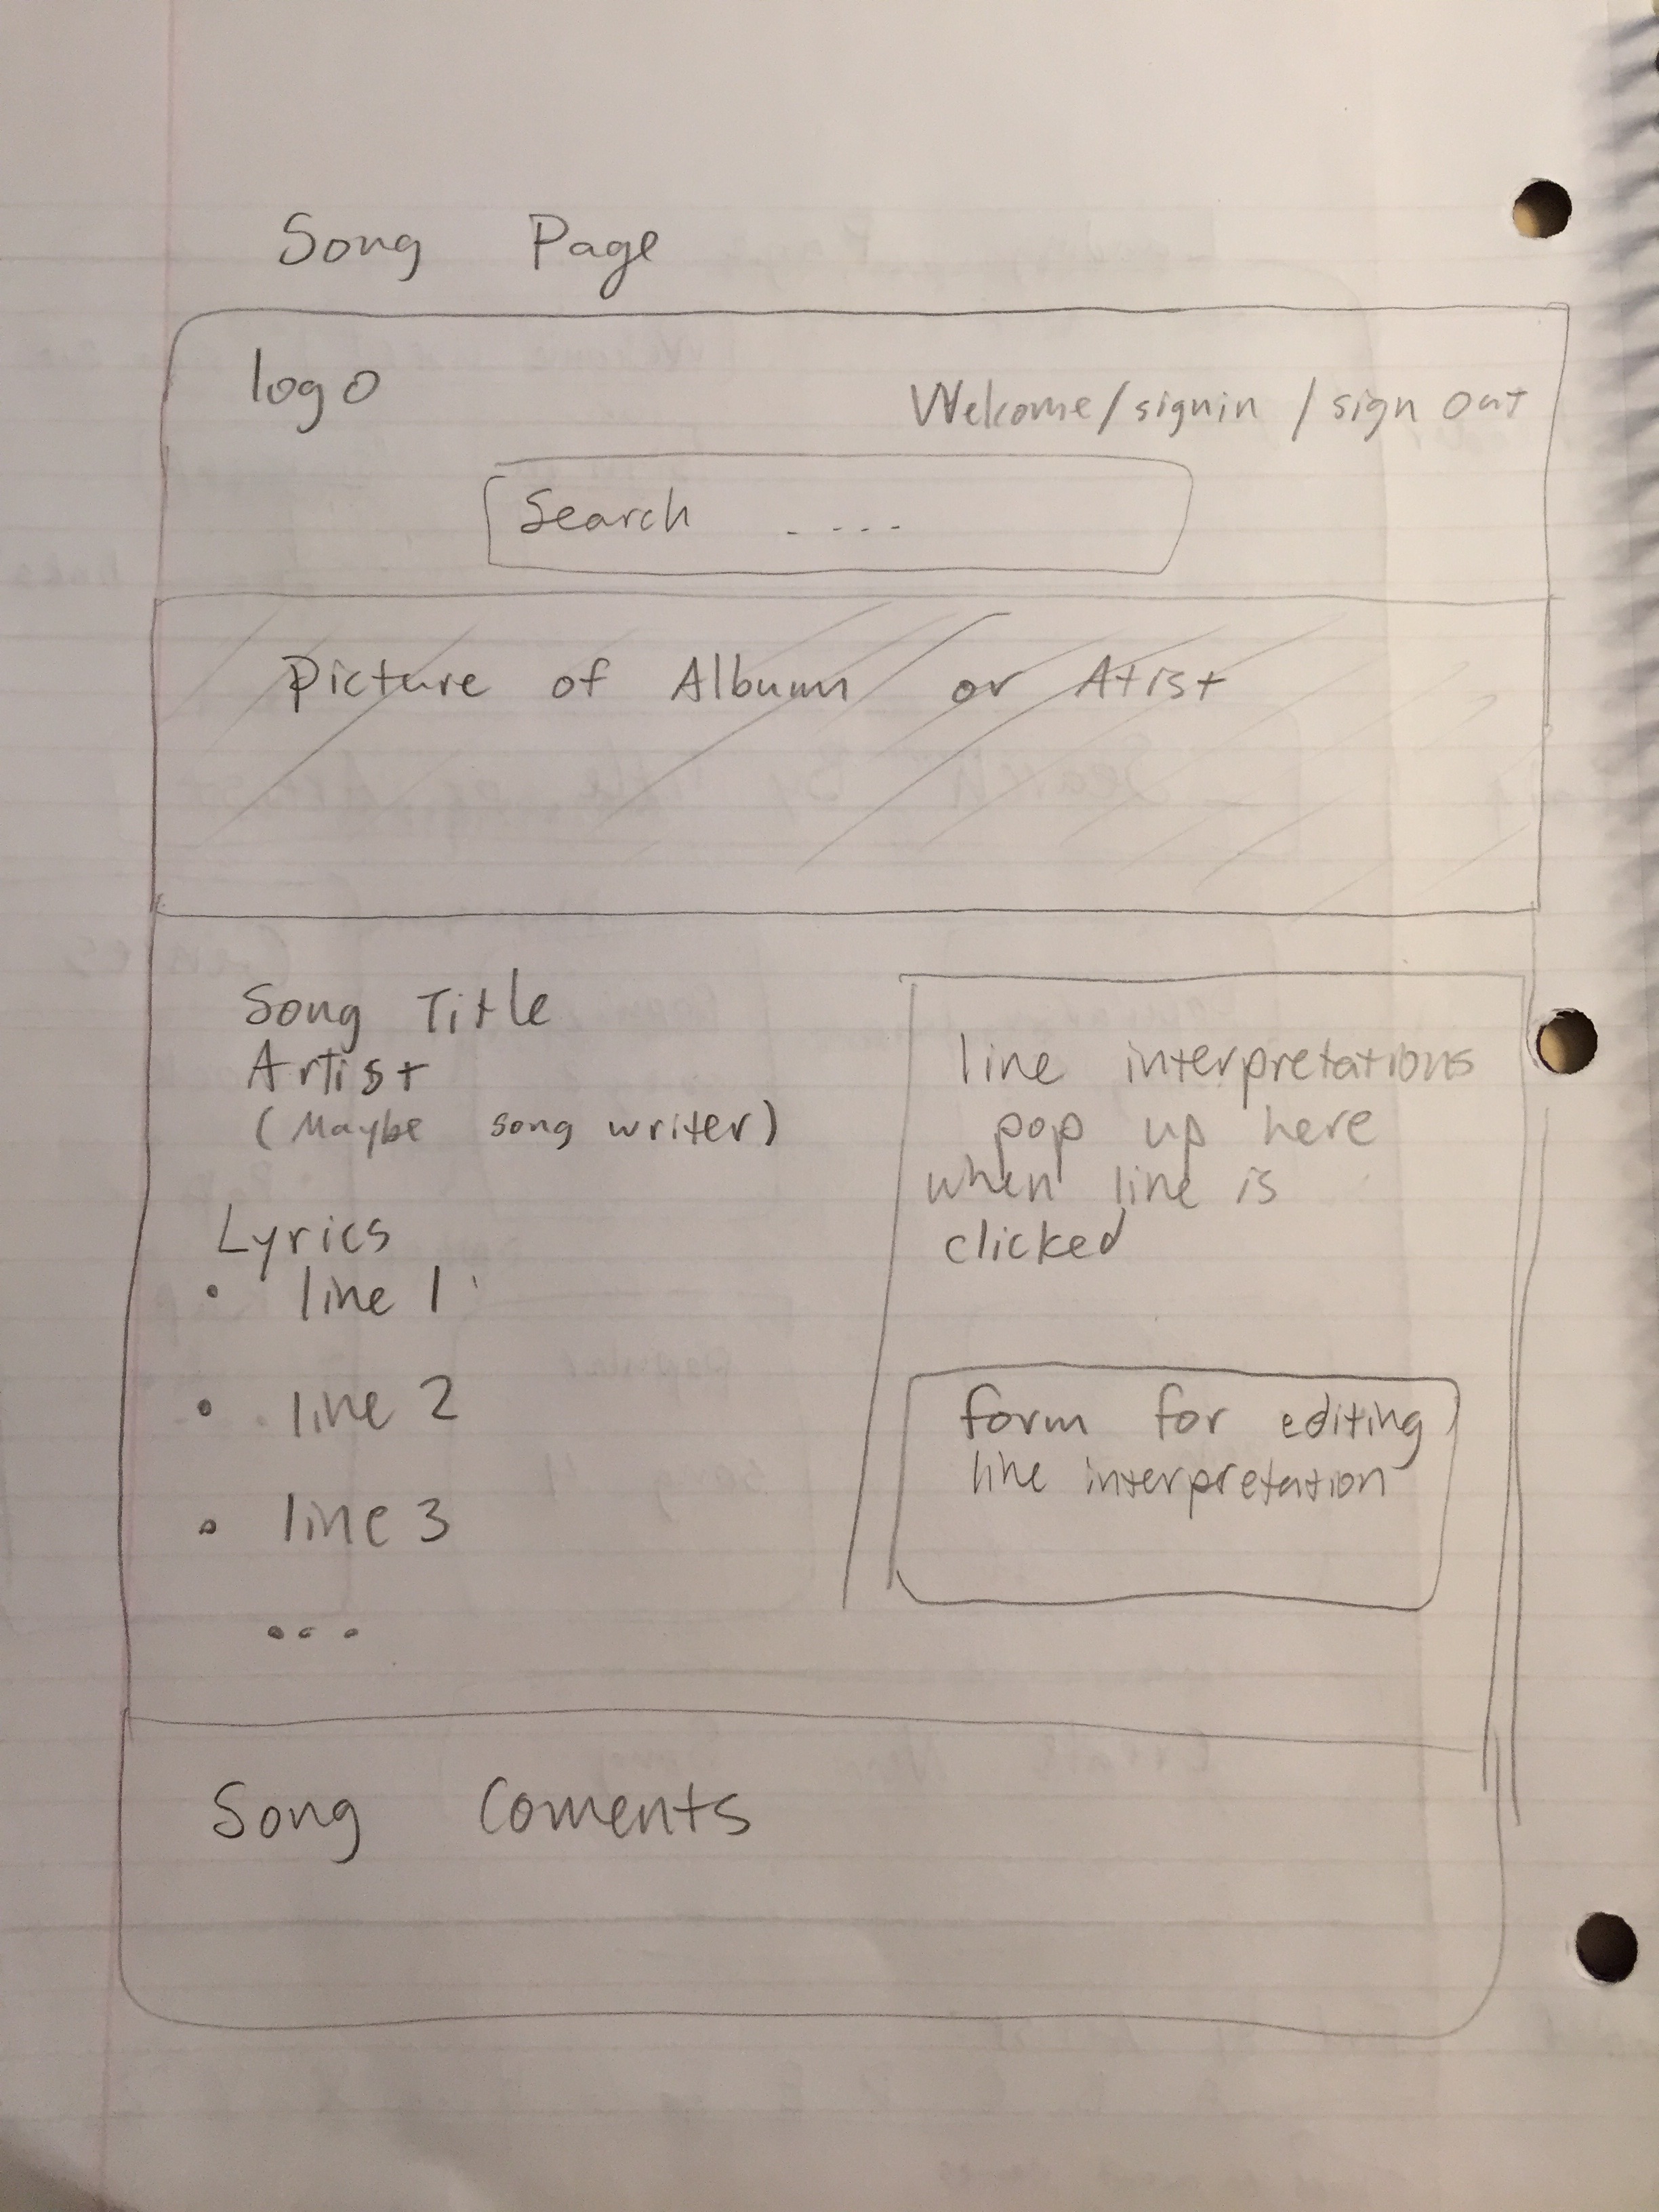 Song Page
logo
Welcome/signin / sign out
Search ....
Picture of Album or Atist
Song Title
Artist
(Maybe song writer)
Lyrics
• line 1
• line 2
• line 3
...
line interpretations
pop up here
when line is
clicked
form for editing
line interpretation
Song Coments